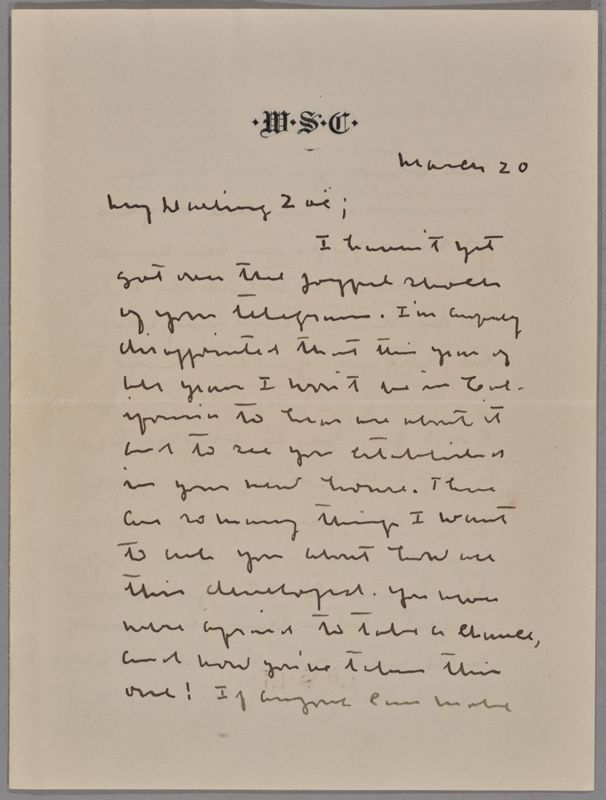 ·W·S·C·
March 20
My Darling Zoë;
I haven't yet
got over the joyful shock
of your telegram. I'm awfully
disappointed that this year of
all years I won't be in Cal-
ifornia to hear all about it
and to see you established
in your new home. There
are so many things I want
to ask you about how all
this developed. You were
never afraid to take a chance,
and now you've taken this
one! If anyone can make